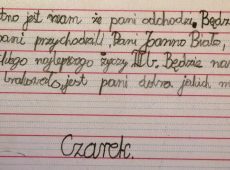 tno jest nam że pani odchodzi. Będzi
pani przychodzili. Pani Joanno Biało,
ego najlepszego życzy III b. Będzie na
brakowało, jest pani dobra jakich m
Czarek.